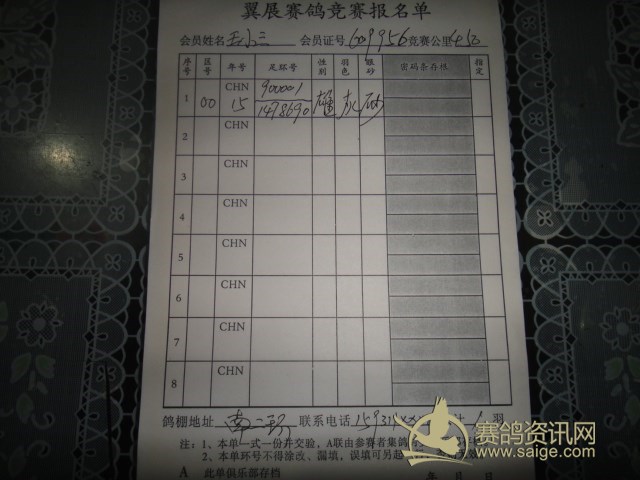 翼展赛鸽竞赛报名单
会员姓名 王小三 会员证号 609956 竞赛公里
序号 区号 年号 足环号 性别 羽色 眼砂 密码条存根 指定
1 00 CHN 15 900001 1478690 雄 灰 砂
2 CHN
3 CHN
4 CHN
5 CHN
6 CHN
7 CHN
8 CHN
鸽棚地址 南二环 联系电话 159 计 1 羽
注：1、本单一式一份并交验，A联由参赛者集鸽
2、本单环号不得涂改、漏填，误填可另起
A 此单俱乐部存档 年 月 日
赛鸽资讯网
www.saige.com